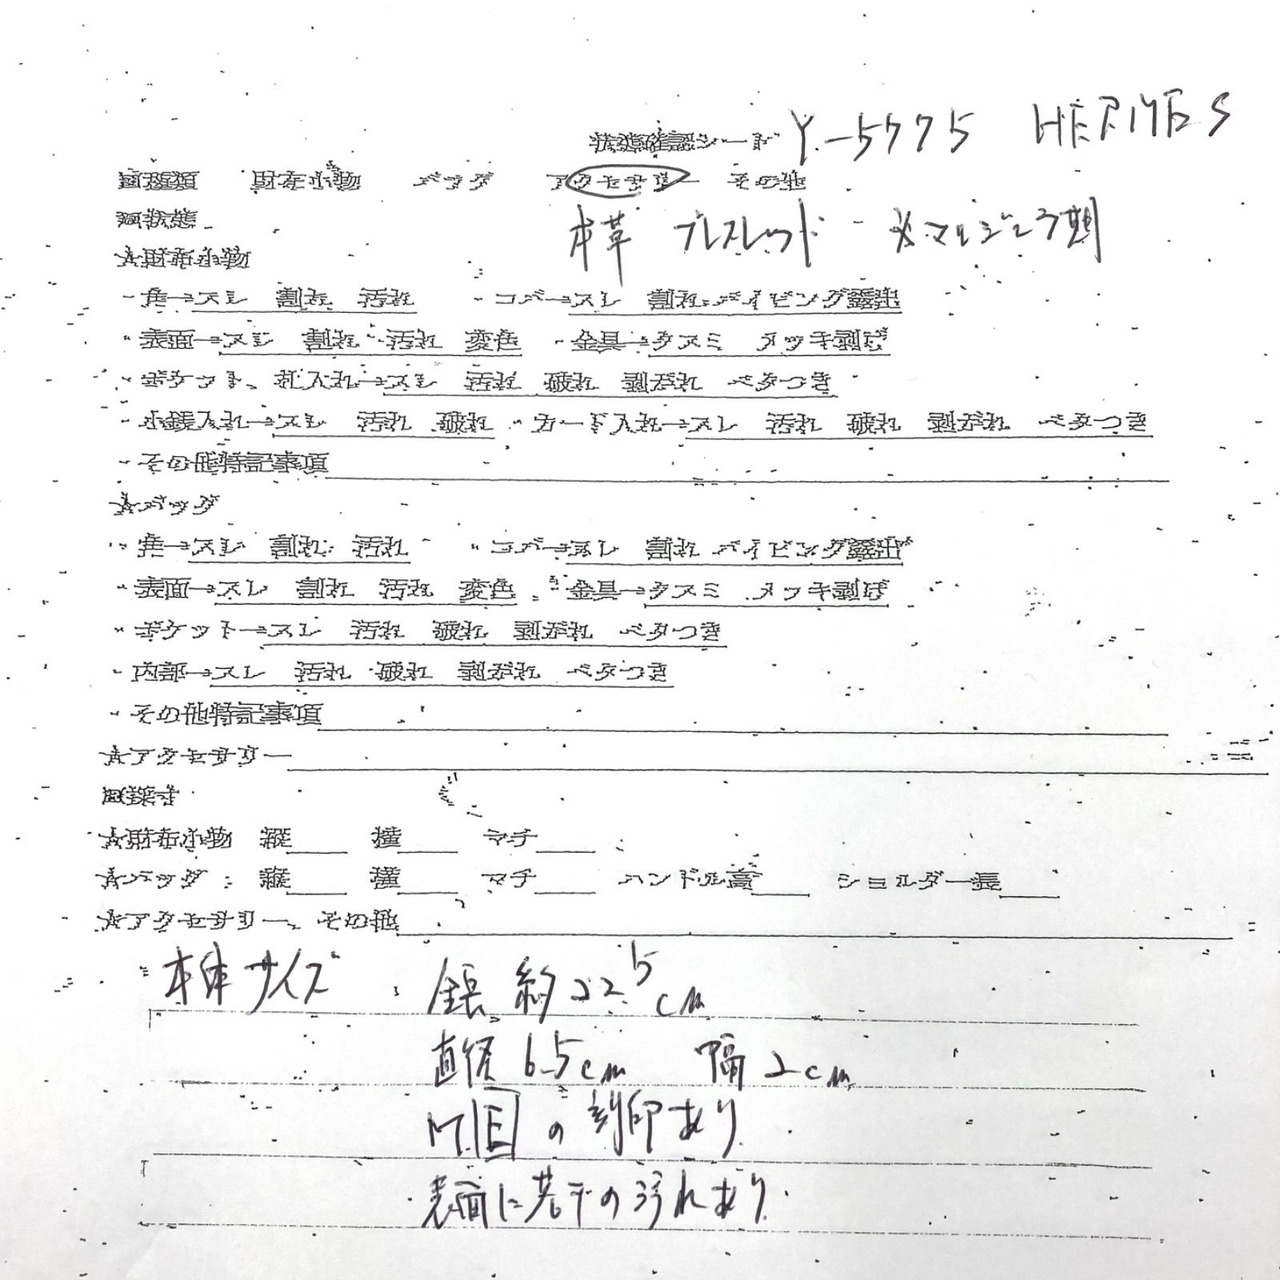 状態確認シート Y-5775 HERMES
□種類 財布小物 バッグ アクセサリー その他
□状態 本革 ブレスレット ※マルジェラ期
☆財布小物
・角→スレ 割れ 汚れ ・コバ→スレ 割れ パイピング露出
・表面→スレ 割れ 汚れ 変色 ・金具→クスミ メッキ剥げ
・ポケット、札入れ→スレ 汚れ 破れ 剥がれ ベタつき
・小銭入れ→スレ 汚れ 破れ ・カード入れ→スレ 汚れ 破れ 剥がれ ベタつき
・その他特記事項
☆バッグ
・角→スレ 割れ 汚れ ・コバ→スレ 割れ パイピング露出
・表面→スレ 割れ 汚れ 変色 ・金具→クスミ メッキ剥げ
・ポケット→スレ 汚れ 破れ 剥がれ ベタつき
・内部→スレ 汚れ 破れ 剥がれ ベタつき
・その他特記事項
☆アクセサリー
□採寸
☆財布小物 縦 横 マチ
☆バッグ: 縦 横 マチ ハンドル高 ショルダー長
☆アクセサリー、その他
本体サイズ 全長 約22.5cm
直径 6.5cm 幅 2cm
の刻印あり
表面に若干の汚れあり